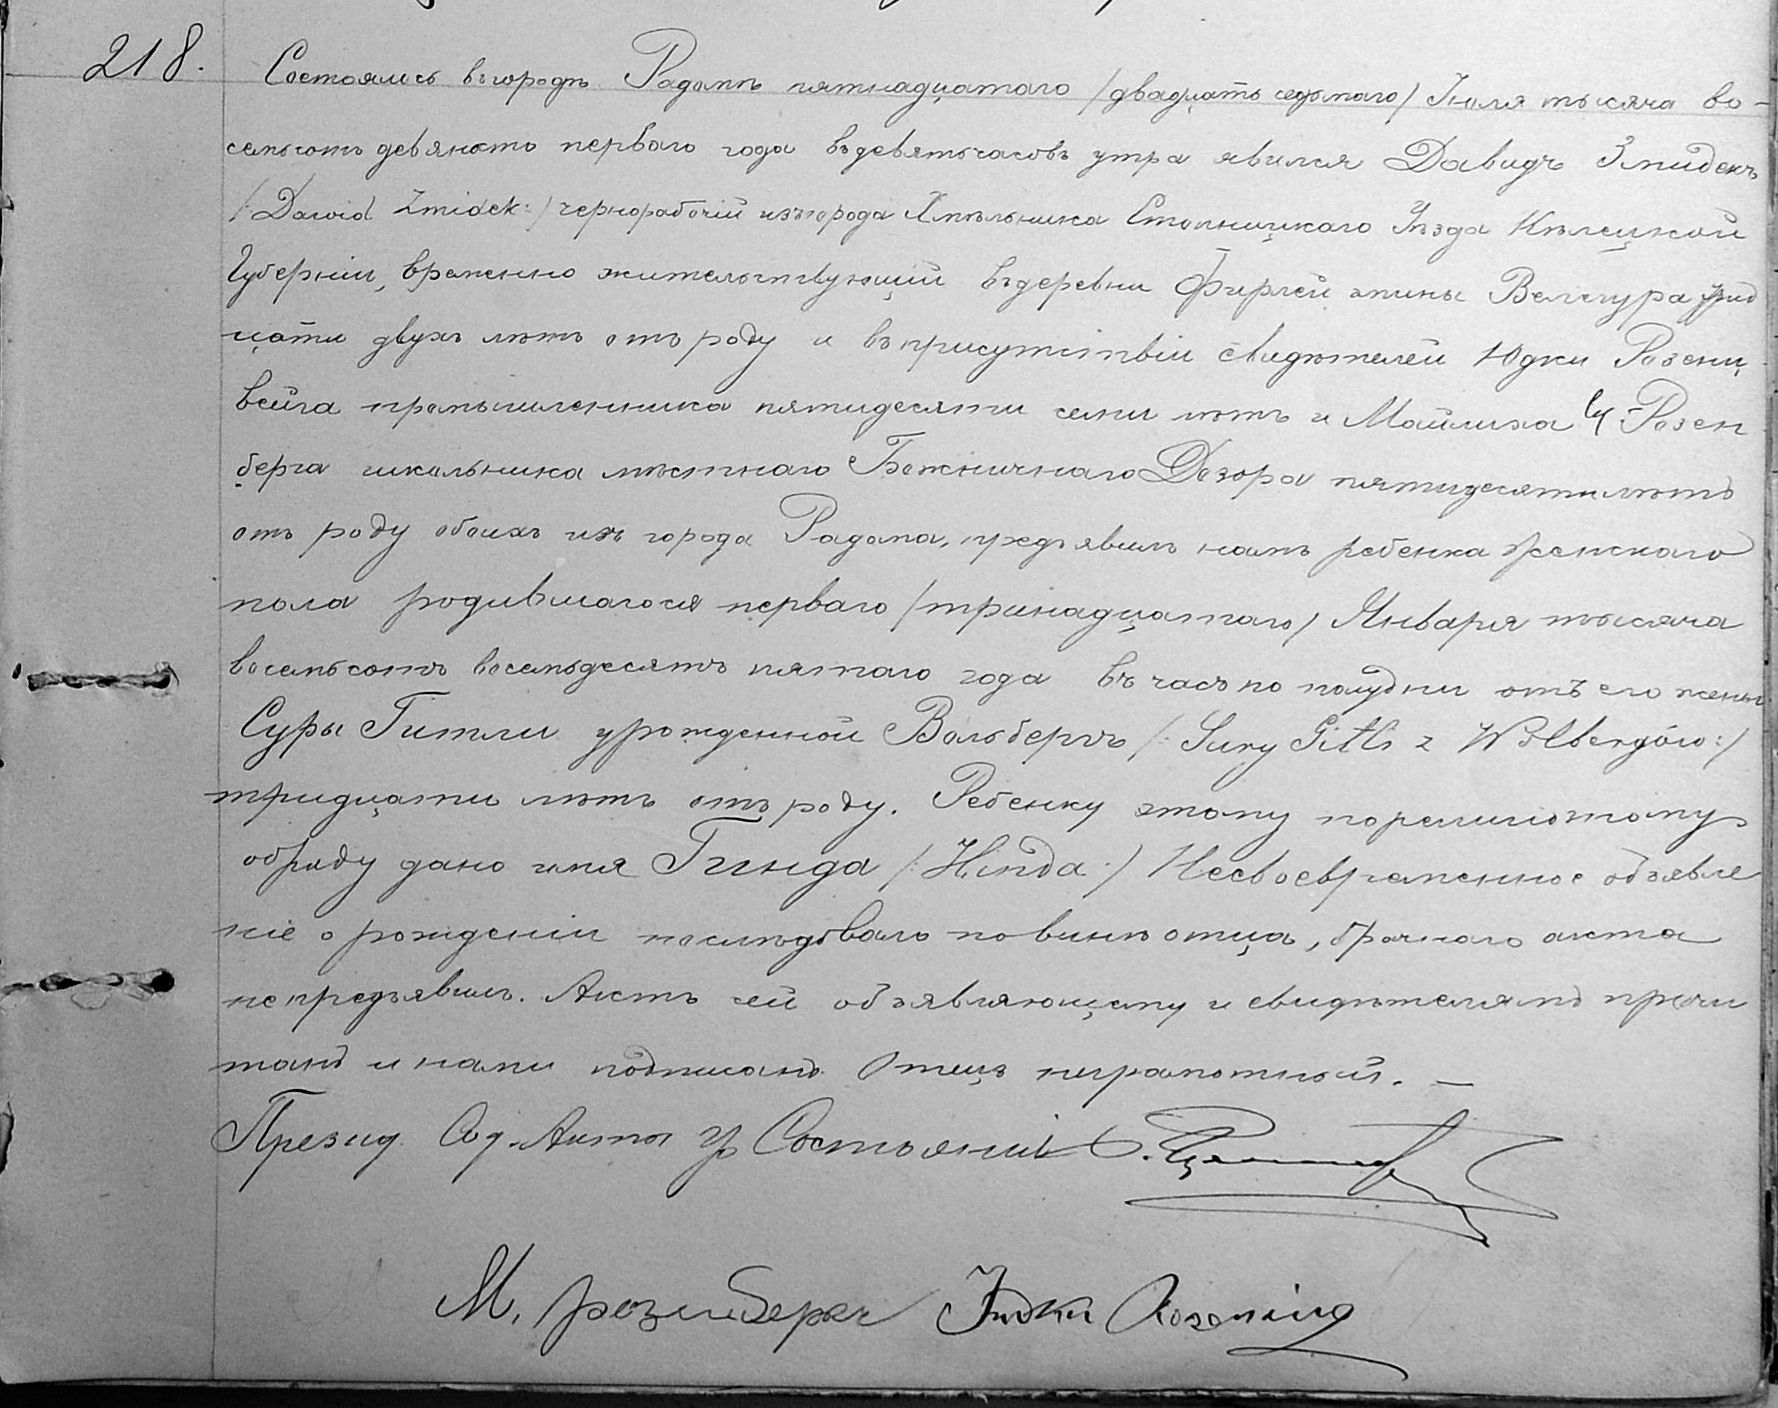 218.
Состоялось въ городѣ Радомѣ пятнадцатаго /двадцать седьмаго/ Іюля тысяча во-
семьсотъ девяносто перваго года въ девять часовъ утра явился Давидъ Змидекъ
/:Dawid Zmidek:/ чернорабочій изъ города Хмѣльника Стопницкаго Уѣзда Кѣлецкой
Губерніи, временно жительствующій въ деревни Фирлей гмины Велегура трид
цати двухъ лѣтъ отъ роду и въ присутствіи свидѣтелей Юдки Розенц
вейга промышленника пятидесяти семи лѣтъ и Маймиха Розен
берга школьника мѣстнаго Божничнаго Дозора пятидесяти лѣтъ
отъ роду обоихъ изъ города Радома, предъявилъ намъ ребенка женскаго
пола родившагося перваго /тринадцатаго/ Января тысяча
восемьсотъ восемьдесятъ пятаго года въ часъ по полудни отъ его жены
Суры Гитли урожденной Вольбергъ /:Sury Gitli z Wolbergów:/
тридцати лѣтъ отъ роду. Ребенку этому по религіозному
обряду дано имя Гинда /:Hinda:/ Несвоевременное объявле
ніе о рожденіи послѣдовало по винѣ отца, брачнаго акта
не предъявилъ. Актъ сей объявляющему и свидѣтелямъ прочи
танъ и нами подписанъ Отецъ неграмотный. —
Презид. Сод. Акты Гр Состоянія
М. Розенбергъ Юдка Rosencwig